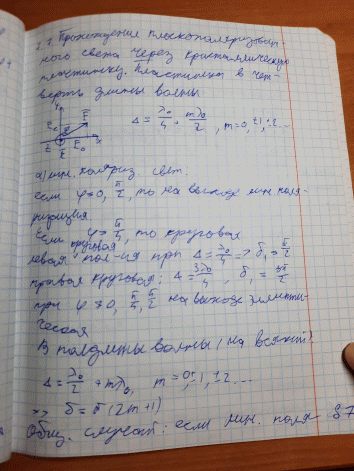 2.7. Прохождение плоскополяризован-
ного света через кристаллическую
пластинку. Пластинка в чет-
верть длины волны
Δ = λ₀/4 + mλ₀/2, m=0, ±1, ±2...
E E₀
а) лин. поляриз. свет.
если φ=0, π/2, то на выходе лин. поля-
ризация
Если φ = π/4, то круговая
круговая
левая пол-ия при Δ = λ₀/4 => δ₁ = π/2
правая круговая: Δ = 3λ₀/4, δ₁ = 3π/2
при φ ≠ 0, π/4, π/2 на выходе эллипти-
ческая
В полдлины волны (на всякий)
Δ = λ₀/2 + mλ₀, m = 0, ±1, ±2...
=> δ = π(2m+1)
Общ. случай: если лин. поля
87